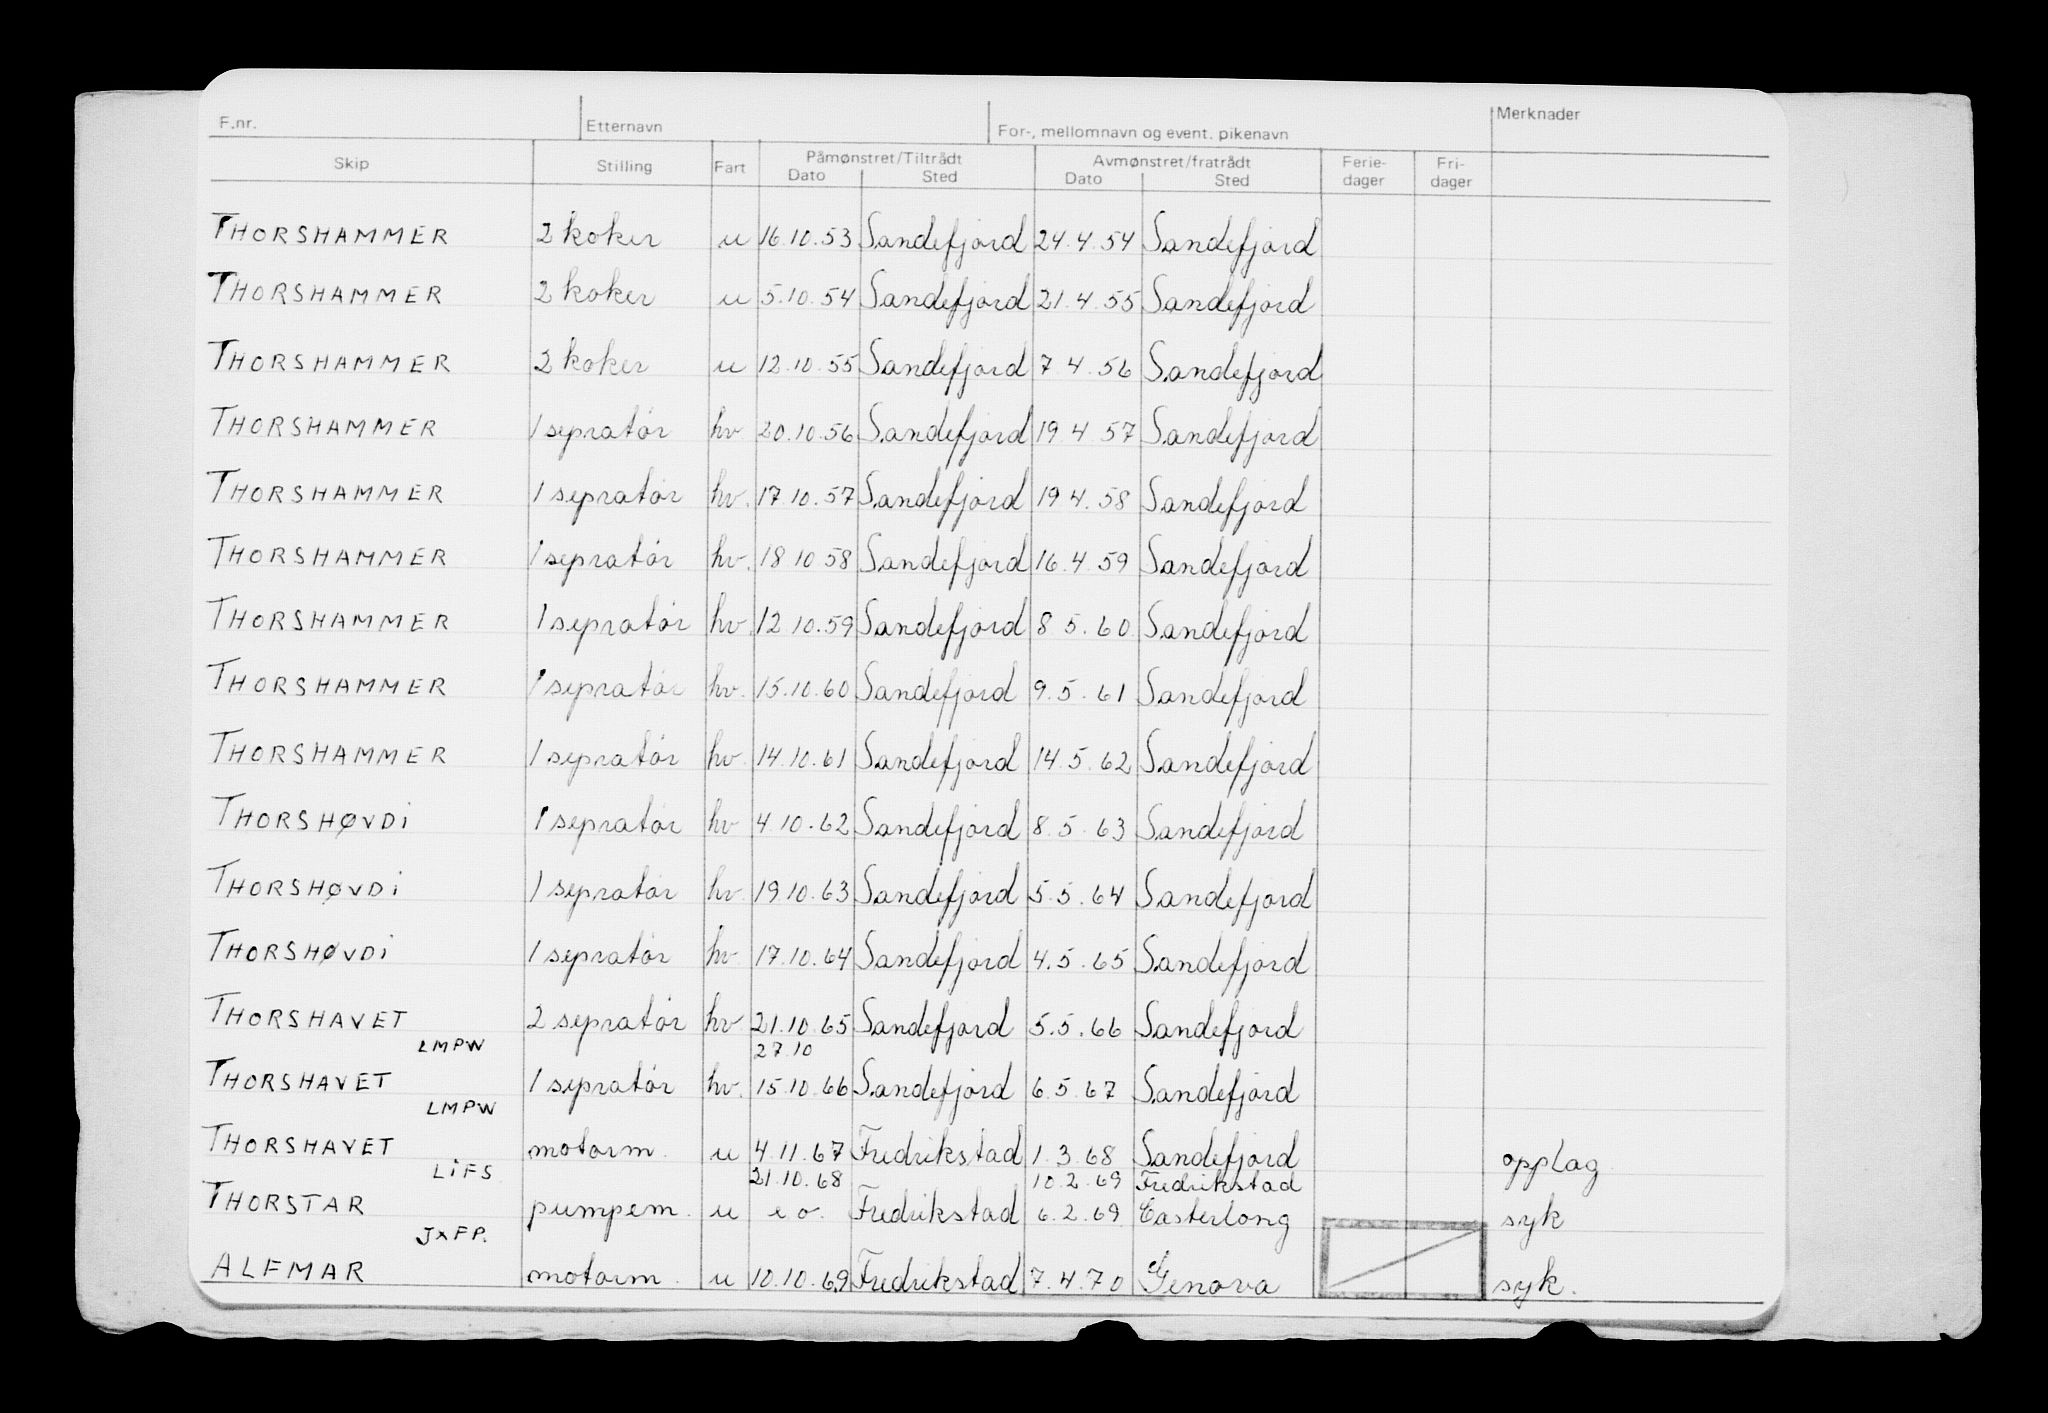 F.nr. Etternavn For-, mellomnavn og event. pikenavn Merknader
Skip Stilling Fart Påmønstret/Tiltrådt Avmønstret/fratrådt Ferie- Fri-
Dato Sted Dato Sted dager dager
THORSHAMMER 2 koker u 16.10.53 Sandefjord 24.4.54 Sandefjord
THORSHAMMER 2 koker u 5.10.54 Sandefjord 21.4.55 Sandefjord
THORSHAMMER 2 koker u 12.10.55 Sandefjord 7 4.56 Sandefjord
THORSHAMMER 1 sepratør hv 20.10.56 Sandefjord 19 4 57 Sandefjord
THORSHAMMER 1 sepratør hv. 17.10.57 Sandefjord 19 4.58 Sandefjord
THORSHAMMER 1 sepratør hv. 18 10.58 Sandefjord 16.4.59 Sandefjord
THORSHAMMER 1 sepratør hv. 12 10.59 Sandefjord 8 5.60 Sandefjord
THORSHAMMER 1 sepratør hv. 15.10.60 Sandefjord 9.5.61 Sandefjord
THORSHAMMER 1 sepratør hv. 14.10.61 Sandefjord 14.5.62 Sandefjord
THORSHØVDI 1 sepratør hv 4.10.62 Sandefjord 8.5.63 Sandefjord
THORSHØVDI 1 sepratør hv. 19.10.63 Sandefjord 5.5.64 Sandefjord
THORSHØVDI 1 sepratør hv. 17.10.64 Sandefjord 4.5.65 Sandefjord
THORSHAVET 2 sepratør hv 21.10.65 Sandefjord 5.5.66 Sandefjord
LMPW 27.10
THORSHAVET 1 sepratør hv. 15.10.66 Sandefjord 6.5.67 Sandefjord
LMPW
THORSHAVET motorm. u 4.11.67 Fredrikstad 1.3.68 Sandefjord opplag
LIFS 21.10.68 10.2.69 Fredrikstad
THORSTAR pumpem. u e.o. Fredrikstad 6.2.69 Easterlong syk
JXFP.
ALFMAR motorm. u 10.10.69 Fredrikstad 7.4.70 Genova syk.